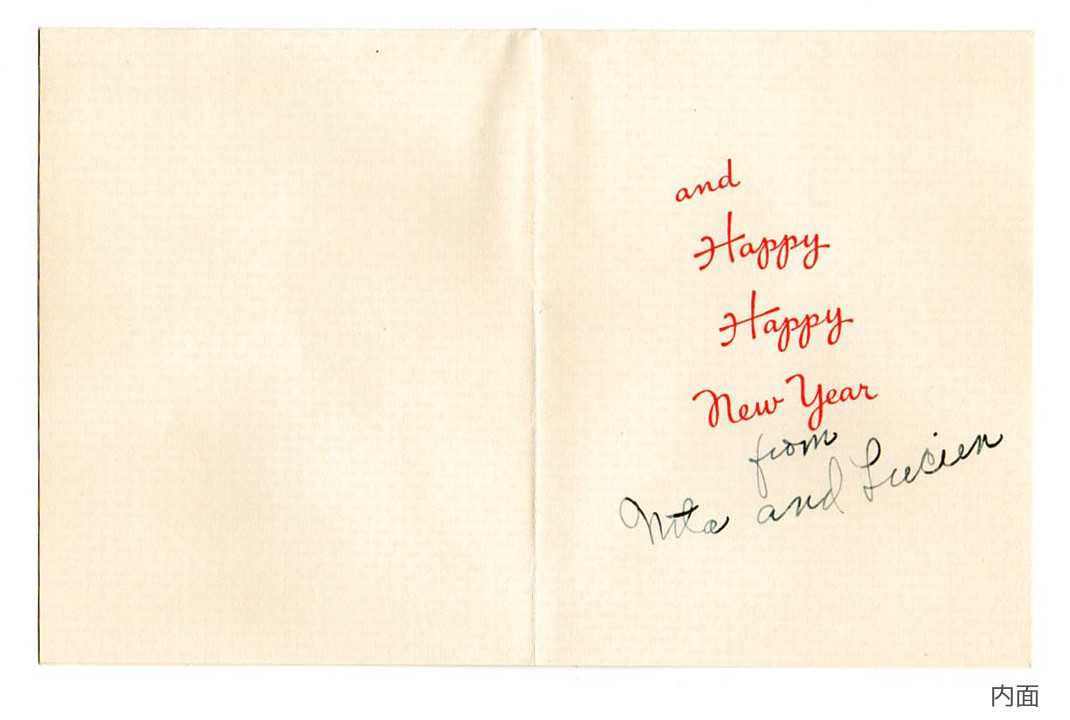 and
Happy
Happy
New Year
from
Nita and Lucien
内面